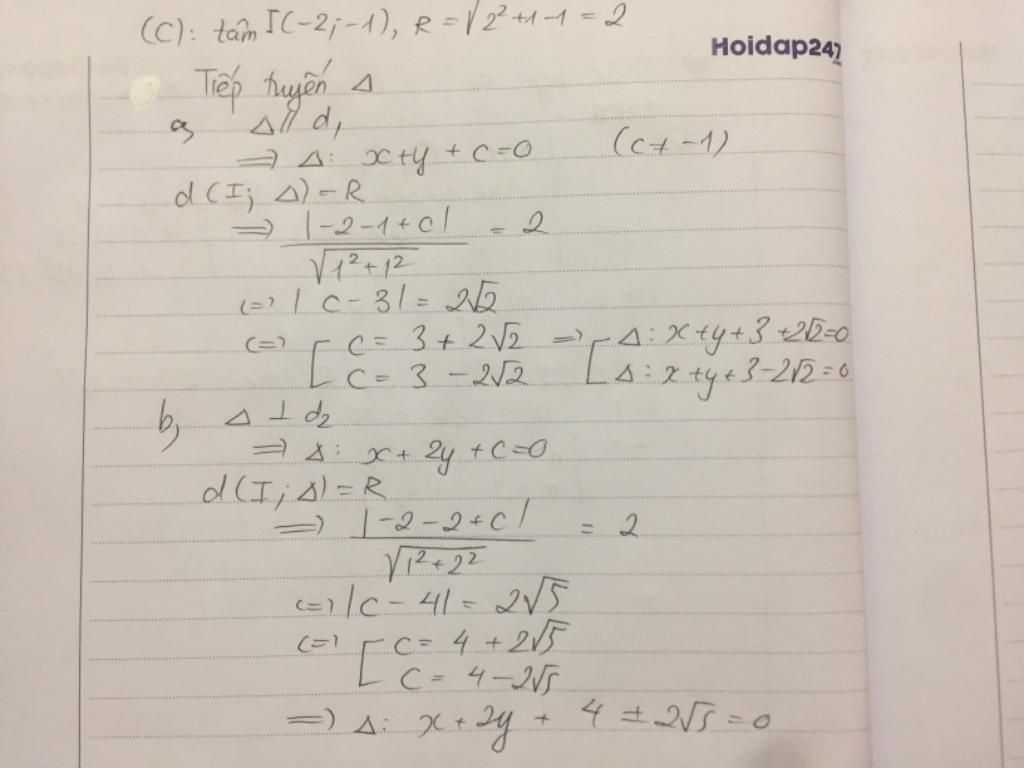 (C): tâm I(-2;-1), R = √2²+1-1 = 2
Hoidap247
Tiếp tuyến Δ
a, Δ // d₁
⇒ Δ: x+y+c=0 (c ≠ -1)
d(I; Δ) = R
⇒ |-2-1+c| / √1²+1² = 2
⇔ |c-3| = 2√2
⇔ [ c = 3+2√2 ⇒ [ Δ: x+y+3+2√2=0
c = 3-2√2 Δ: x+y+3-2√2=0
b, Δ ⊥ d₂
⇒ Δ: x+2y+c=0
d(I; Δ) = R
⇒ |-2-2+c| / √1²+2² = 2
⇔ |c-4| = 2√5
⇔ [ c = 4+2√5
c = 4-2√5
⇒ Δ: x+2y+4±2√5=0